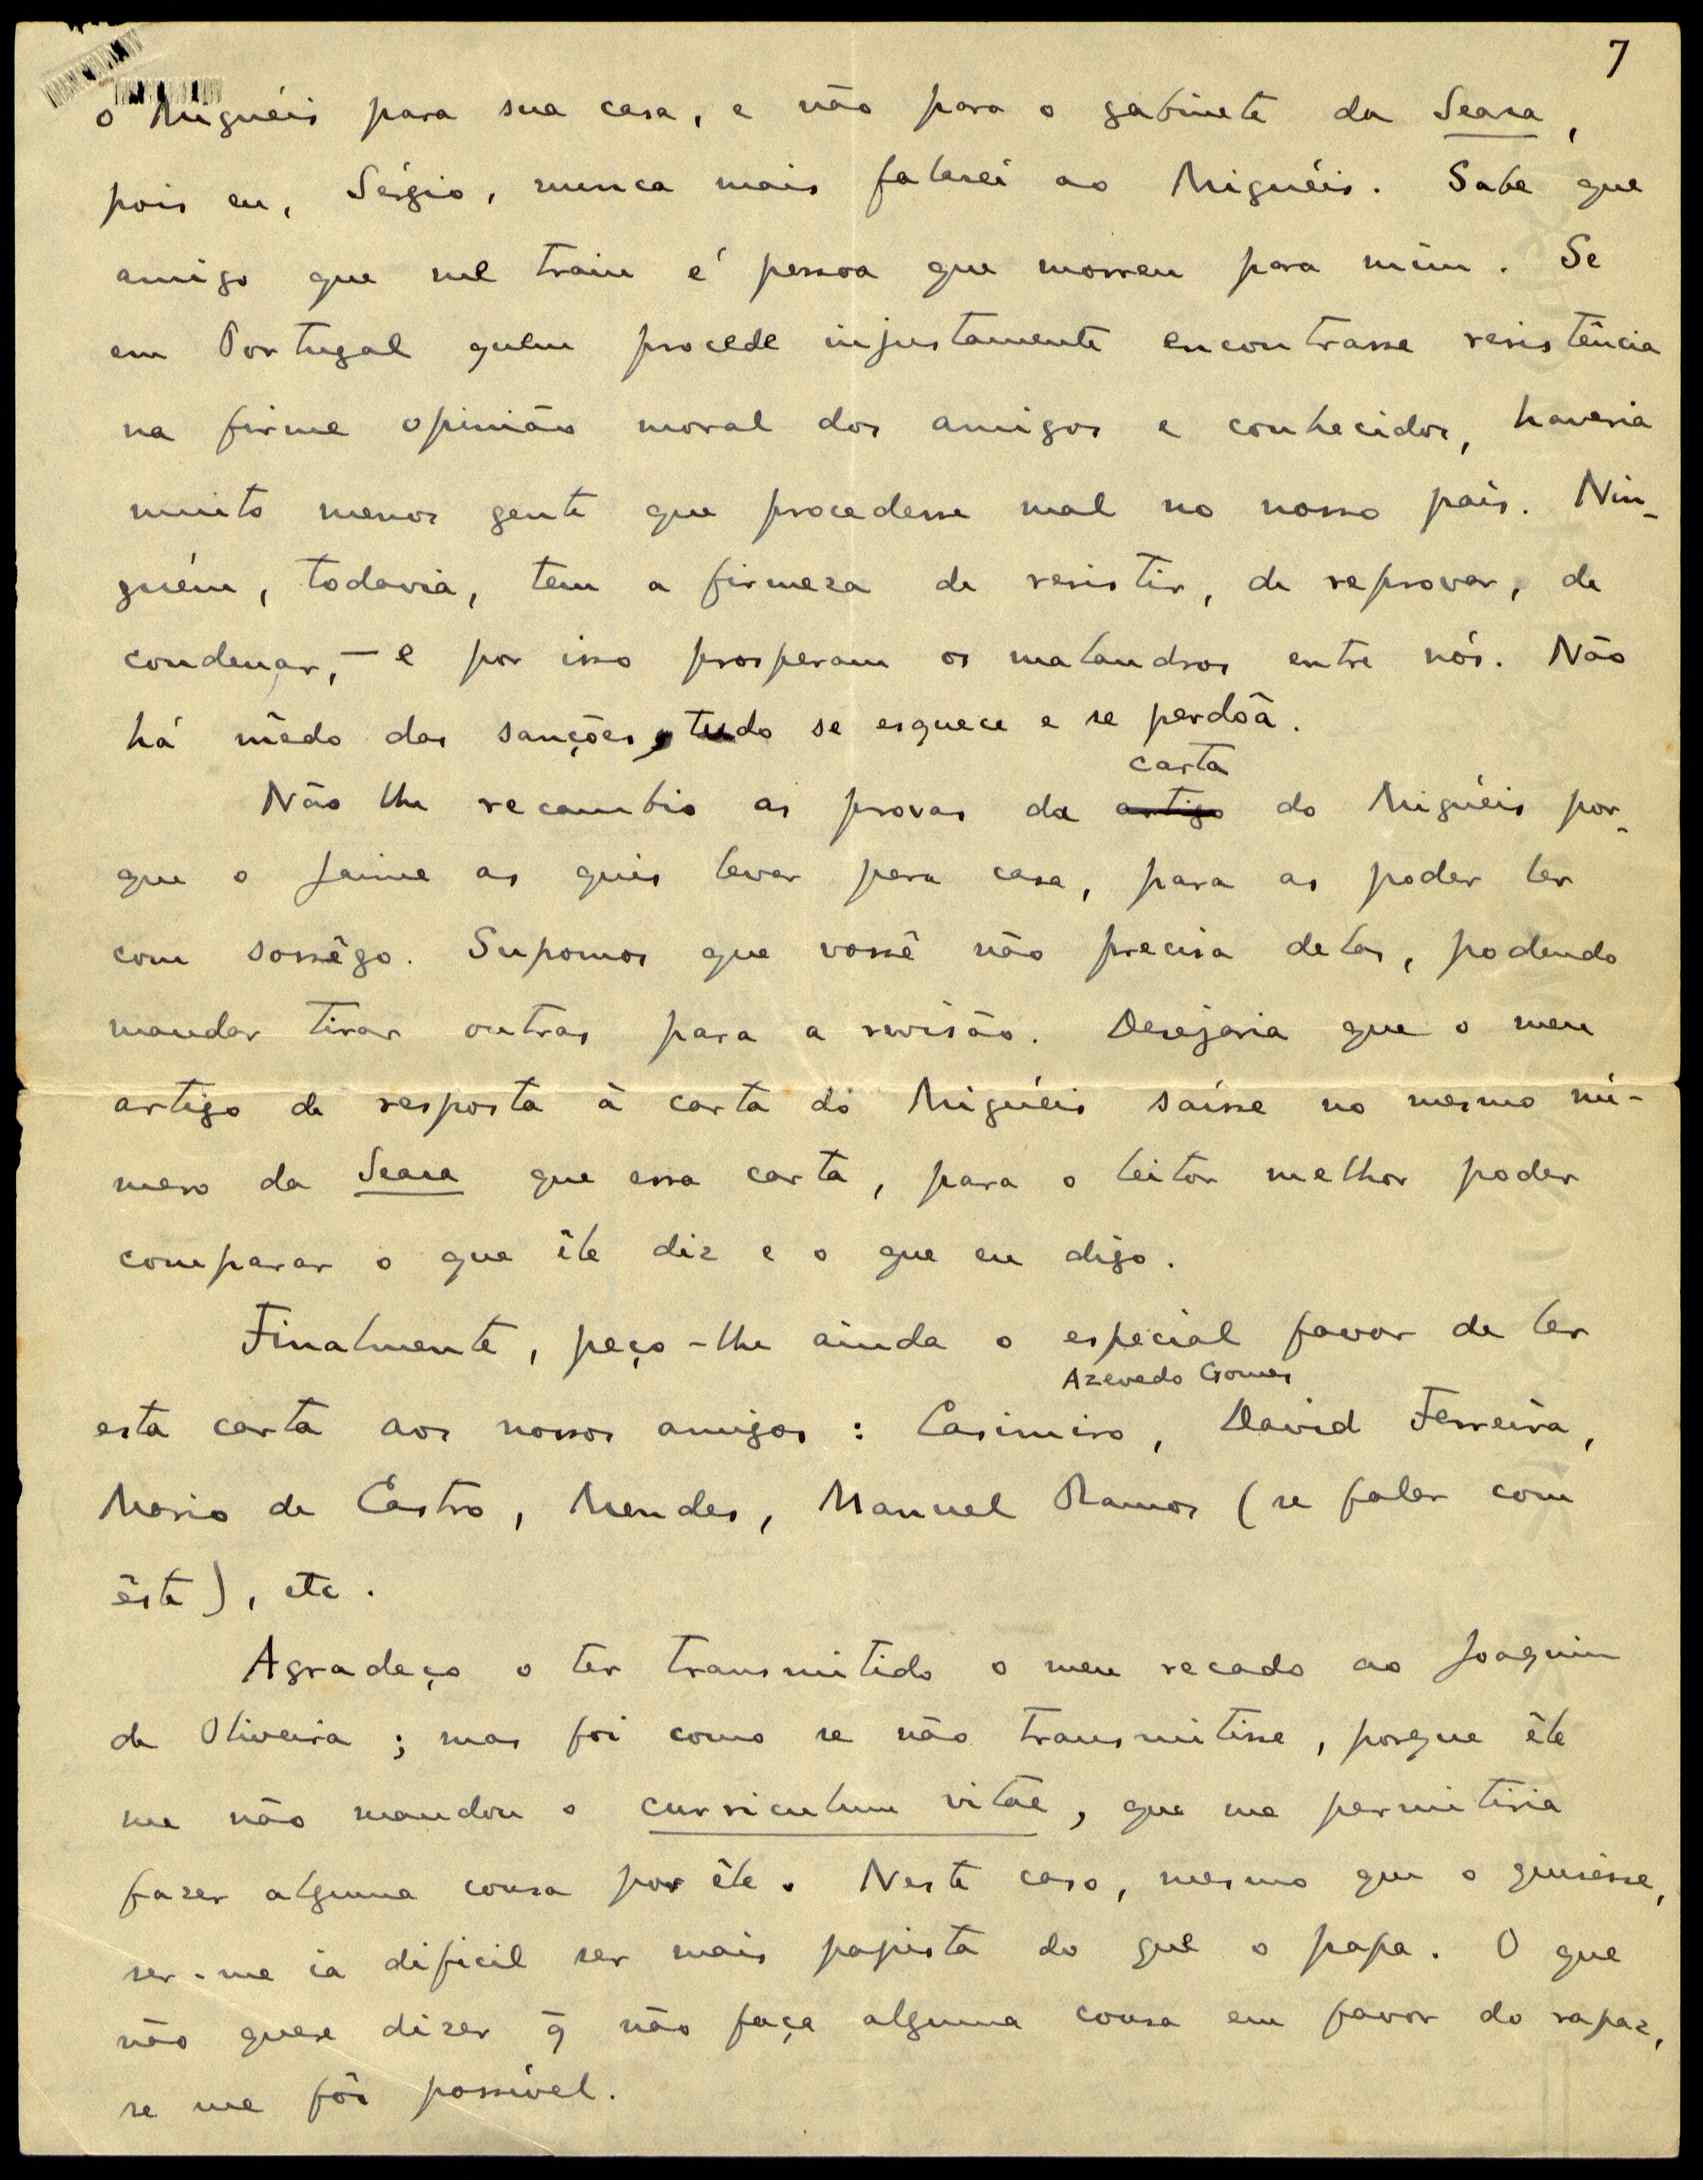 7
o Miguéis para sua casa, e não para o gabinete da Seara,
pois eu, Sérgio, nunca mais falarei ao Miguéis. Sabe que
amigo que me traiu é pessoa que morreu para mim. Se
em Portugal quem procede injustamente encontrasse resistência
na firme opinião moral dos amigos e conhecidos, haveria
muito menos gente que procedesse mal no nosso país. Nin-
guém, todavia, tem a firmeza de resistir, de reprovar, de
condenar, – e por isso prosperam os malandros entre nós. Não
há mêdo das sanções, tudo se esquece e se perdôa.
carta
Não lhe recambio as provas da artigo do Miguéis por-
que o Jaime as quis levar para casa, para as poder ler
com sossêgo. Supomos que vossê não precisa delas, podendo
mandar tirar outras para a revisão. Desejaria que o meu
artigo de resposta à carta do Miguéis saísse no mesmo nú-
mero da Seara que essa carta, para o leitor melhor poder
comparar o que êle diz e o que eu digo.
Finalmente, peço-lhe ainda o especial favor de ler
Azevedo Gomes
esta carta aos nossos amigos: Casimiro, David Ferreira,
Mario de Castro, Mendes, Manuel Ramos (se falar com
êste), etc.
Agradeço o ter transmitido o meu recado ao Joaquim
de Oliveira; mas foi como se não transmitisse, porque êle
me não mandou o curriculum vitae, que me permitiria
fazer alguma cousa por êle. Neste caso, mesmo que o quisesse,
ser-me ia dificil ser mais papista do que o papa. O que
não quere dizer q̃ não faça alguma cousa em favor do rapaz,
se me fôr possível.